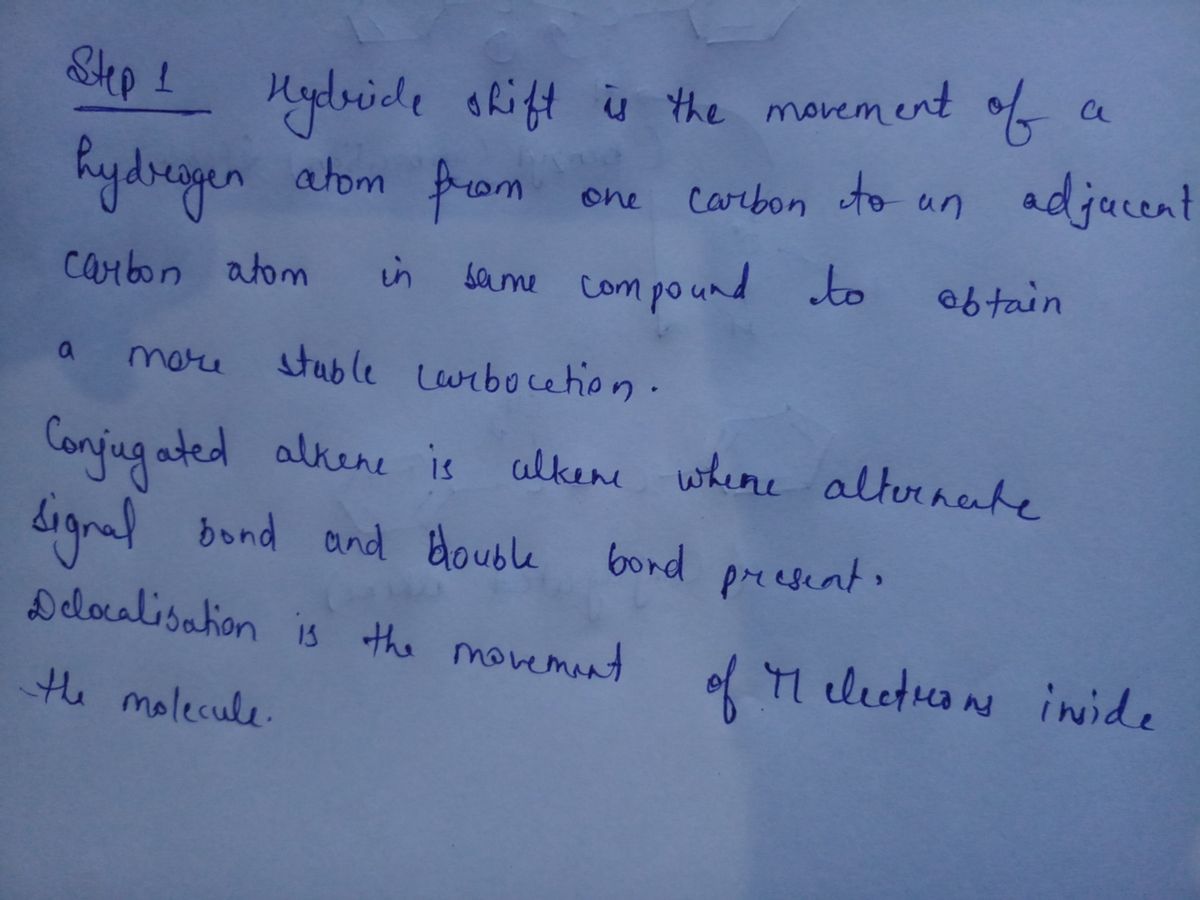 Step 1 Hydride shift is the movement of a
hydrogen atom from one carbon to an adjacent
carbon atom in same compound to obtain
a more stable carbocation.
Conjugated alkene is alkene where alternate
signal bond and double bond present.
Delocalisation is the movement of π electrons inside
the molecule.